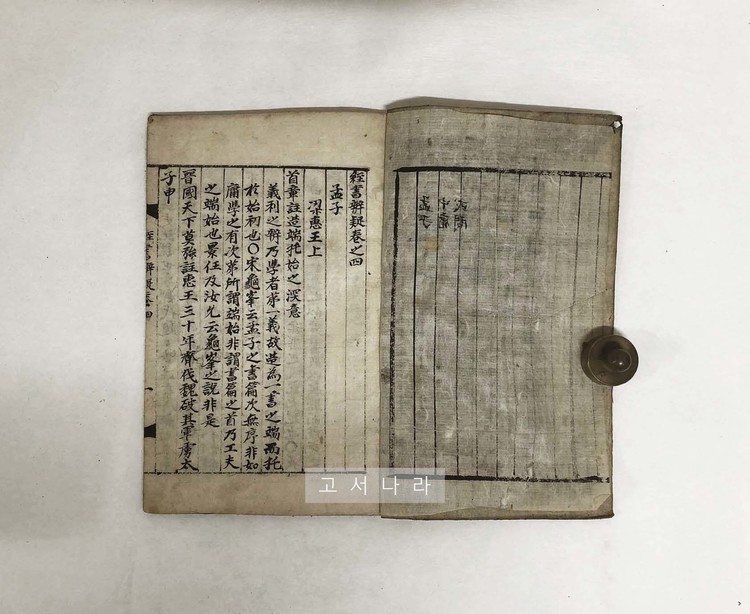 或問
中庸
孟子
經書辨疑卷之四
孟子
梁惠王上
首章註造端托始之深意
義利之辨乃學者第一義故造為一書之端而托
於始初也○宋龜峯云孟子之書篇次無序非如
庸學之有次第所謂端始非謂書篇之首乃工夫
之端始也景任及汝允云龜峯之說非是
晉國天下莫強註惠王三十年齊伐魏破其軍虜太
子申
經書辨疑卷四
一
고서나라